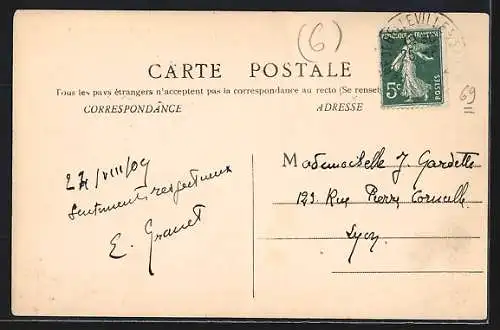 (6)
BELLEVILLE
CARTE POSTALE
REPUBLIQUE FRANÇAISE
5c
POSTES
Tous les pays étrangers n'acceptent pas la correspondance au recto (Se rensei
CORRESPONDANCE ADRESSE
69
Mademoiselle J. Gardette
27/VIII/09
123 Rue Pierre Corneille
Sentiments respectueux
Lyon.
E. Granet